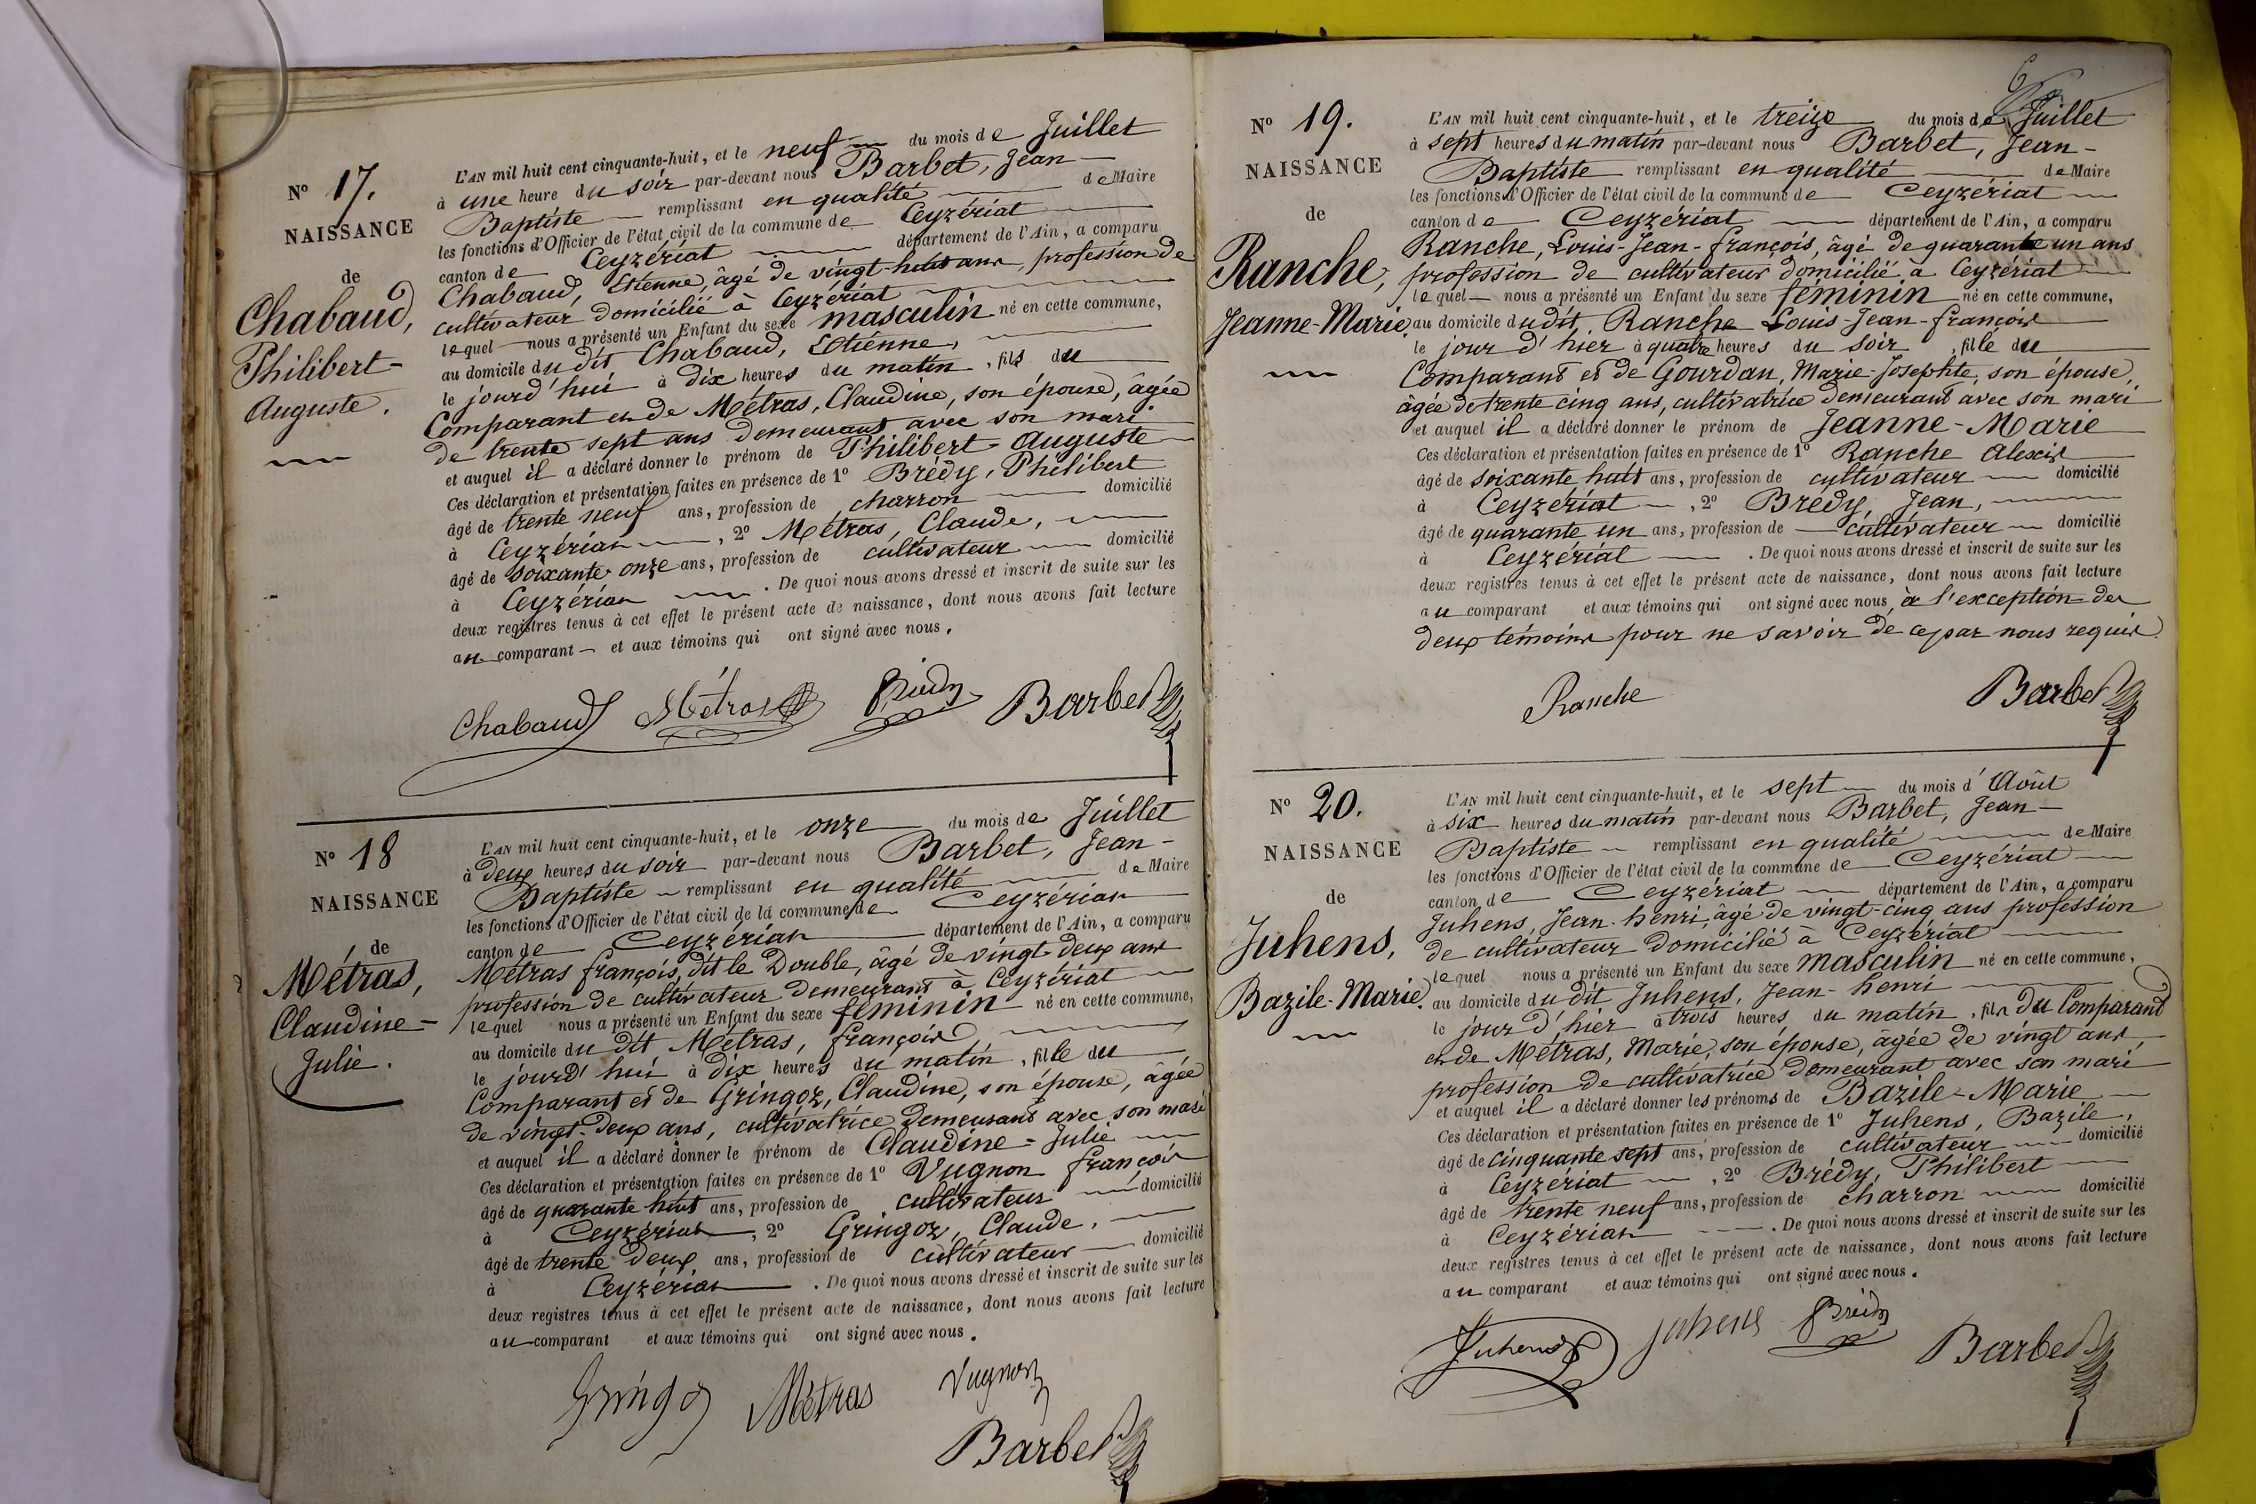 N° 17.
NAISSANCE
de
Chabaud,
Philibert-
Auguste.
L'AN mil huit cent cinquante-huit, et le neuf du mois de Juillet
à une heure du soir par-devant nous Barbet, Jean-
Baptiste remplissant en qualité de Maire
les fonctions d'Officier de l'état civil de la commune de Ceyzériat
canton de Ceyzériat département de l'Ain, a comparu
Chabaud, Etienne, âgé de vingt-huit ans, profession de
cultivateur domicilié à Ceyzériat
lequel nous a présenté un Enfant du sexe masculin né en cette commune,
au domicile du dit Chabaud, Etienne,
le jourd'hui à dix heures du matin, fils du
Comparant et de Métras, Claudine, son épouse, âgée
de trente sept ans demeurant avec son mari
et auquel il a déclaré donner le prénom de Philibert-Auguste
Ces déclaration et présentation faites en présence de 1° Brédy, Philibert
âgé de trente neuf ans, profession de charron domicilié
à Ceyzériat, 2° Métras, Claude,
âgé de soixante onze ans, profession de cultivateur domicilié
à Ceyzériat. De quoi nous avons dressé et inscrit de suite sur les
deux registres tenus à cet effet le présent acte de naissance, dont nous avons fait lecture
au comparant et aux témoins qui ont signé avec nous.
Chabaud Métras Brédy Barbet
N° 18
NAISSANCE
de
Métras,
Claudine-
Julie.
L'AN mil huit cent cinquante-huit, et le onze du mois de Juillet
à deux heures du soir par-devant nous Barbet, Jean-
Baptiste remplissant en qualité de Maire
les fonctions d'Officier de l'état civil de la commune de Ceyzériat
canton de Ceyzériat département de l'Ain, a comparu
Métras françois, dit le Double, âgé de vingt-deux ans
profession de cultivateur demeurant à Ceyzériat
lequel nous a présenté un Enfant du sexe féminin né en cette commune,
au domicile du dit Métras, françois
le jourd'hui à dix heures du matin, fille du
Comparant et de Gringoz, Claudine, son épouse, âgée
de vingt-deux ans, cultivatrice demeurant avec son mari
et auquel il a déclaré donner le prénom de Claudine-Julie
Ces déclaration et présentation faites en présence de 1° Vugnon françois
âgé de quarante huit ans, profession de cultivateur domicilié
à Ceyzériat, 2° Gringoz, Claude,
âgé de trente deux ans, profession de cultivateur domicilié
à Ceyzériat. De quoi nous avons dressé et inscrit de suite sur les
deux registres tenus à cet effet le présent acte de naissance, dont nous avons fait lecture
au comparant et aux témoins qui ont signé avec nous.
Gringoz Métras Vugnon
Barbet
N° 19.
NAISSANCE
de
Ranche,
Jeanne-Marie.
L'AN mil huit cent cinquante-huit, et le treize du mois de Juillet
à sept heures du matin par-devant nous Barbet, Jean-
Baptiste remplissant en qualité de Maire
les fonctions d'Officier de l'état civil de la commune de Ceyzériat
canton de Ceyzériat département de l'Ain, a comparu
Ranche, Louis-Jean-françois, âgé de quarante un ans
profession de cultivateur domicilié à Ceyzériat
lequel nous a présenté un Enfant du sexe féminin né en cette commune,
au domicile du dit Ranche Louis-Jean-françois
le jour d'hier à quatre heures du soir, fille du
Comparant et de Gourdan, Marie-Josephte, son épouse,
âgée de trente cinq ans, cultivatrice demeurant avec son mari
et auquel il a déclaré donner le prénom de Jeanne-Marie
Ces déclaration et présentation faites en présence de 1° Ranche Alexis
âgé de soixante huit ans, profession de cultivateur domicilié
à Ceyzériat, 2° Brédy, Jean,
âgé de quarante un ans, profession de cultivateur domicilié
à Ceyzériat. De quoi nous avons dressé et inscrit de suite sur les
deux registres tenus à cet effet le présent acte de naissance, dont nous avons fait lecture
au comparant et aux témoins qui ont signé avec nous, à l'exception des
deux témoins pour ne savoir de ce par nous requis.
Ranche Barbet
N° 20.
NAISSANCE
de
Juhens,
Bazile-Marie.
L'AN mil huit cent cinquante-huit, et le sept du mois d'Août
à six heures du matin par-devant nous Barbet, Jean-
Baptiste remplissant en qualité de Maire
les fonctions d'Officier de l'état civil de la commune de Ceyzériat
canton de Ceyzériat département de l'Ain, a comparu
Juhens, Jean-henri, âgé de vingt-cinq ans profession
de cultivateur domicilié à Ceyzériat
lequel nous a présenté un Enfant du sexe masculin né en cette commune,
au domicile du dit Juhens, Jean-henri
le jour d'hier à trois heures du matin, fils du Comparant
et de Métras, Marie, son épouse, âgée de vingt ans,
profession de cultivatrice demeurant avec son mari
et auquel il a déclaré donner les prénoms de Bazile-Marie
Ces déclaration et présentation faites en présence de 1° Juhens, Bazile,
âgé de cinquante sept ans, profession de cultivateur domicilié
à Ceyzériat, 2° Brédy, Philibert
âgé de trente neuf ans, profession de charron domicilié
à Ceyzériat. De quoi nous avons dressé et inscrit de suite sur les
deux registres tenus à cet effet le présent acte de naissance, dont nous avons fait lecture
au comparant et aux témoins qui ont signé avec nous.
Juhens Juhens Brédy Barbet